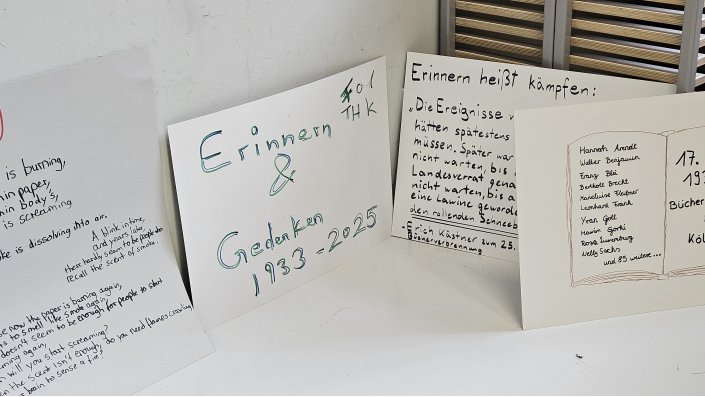 is burning,
paper,
body's,
is screaming
is dissolving into air.
A blink in time,
and years later
there hardly seem to be people who
recall the scent of smoke.
now the paper is burning again,
to smell like smoke again,
doesn't seem to be enough for people to start
again,
will you start screaming?
the scent isn't enough, do you need flames crawling
brain to sense a fire?
Erinnern
&
Gedenken
1933 - 2025
F01
THK
Erinnern heißt kämpfen:
„Die Ereignisse
hätten spätestens
müssen. Später war
nicht warten, bis
Landesverrat
nicht warten, bis
eine Lawine
den rollenden
- Erich Kästner zum 25.
Bücherverbrennung
Hannah Arendt
Walter Benjamin
Franz Blei
Berthold Brecht
Marieluise Fleißner
Leonhard Frank
Yvan Goll
Maxim Gorki
Rosa Luxemburg
Nelly Sachs
und 89 weitere...
17.
193
Bücher
Köl